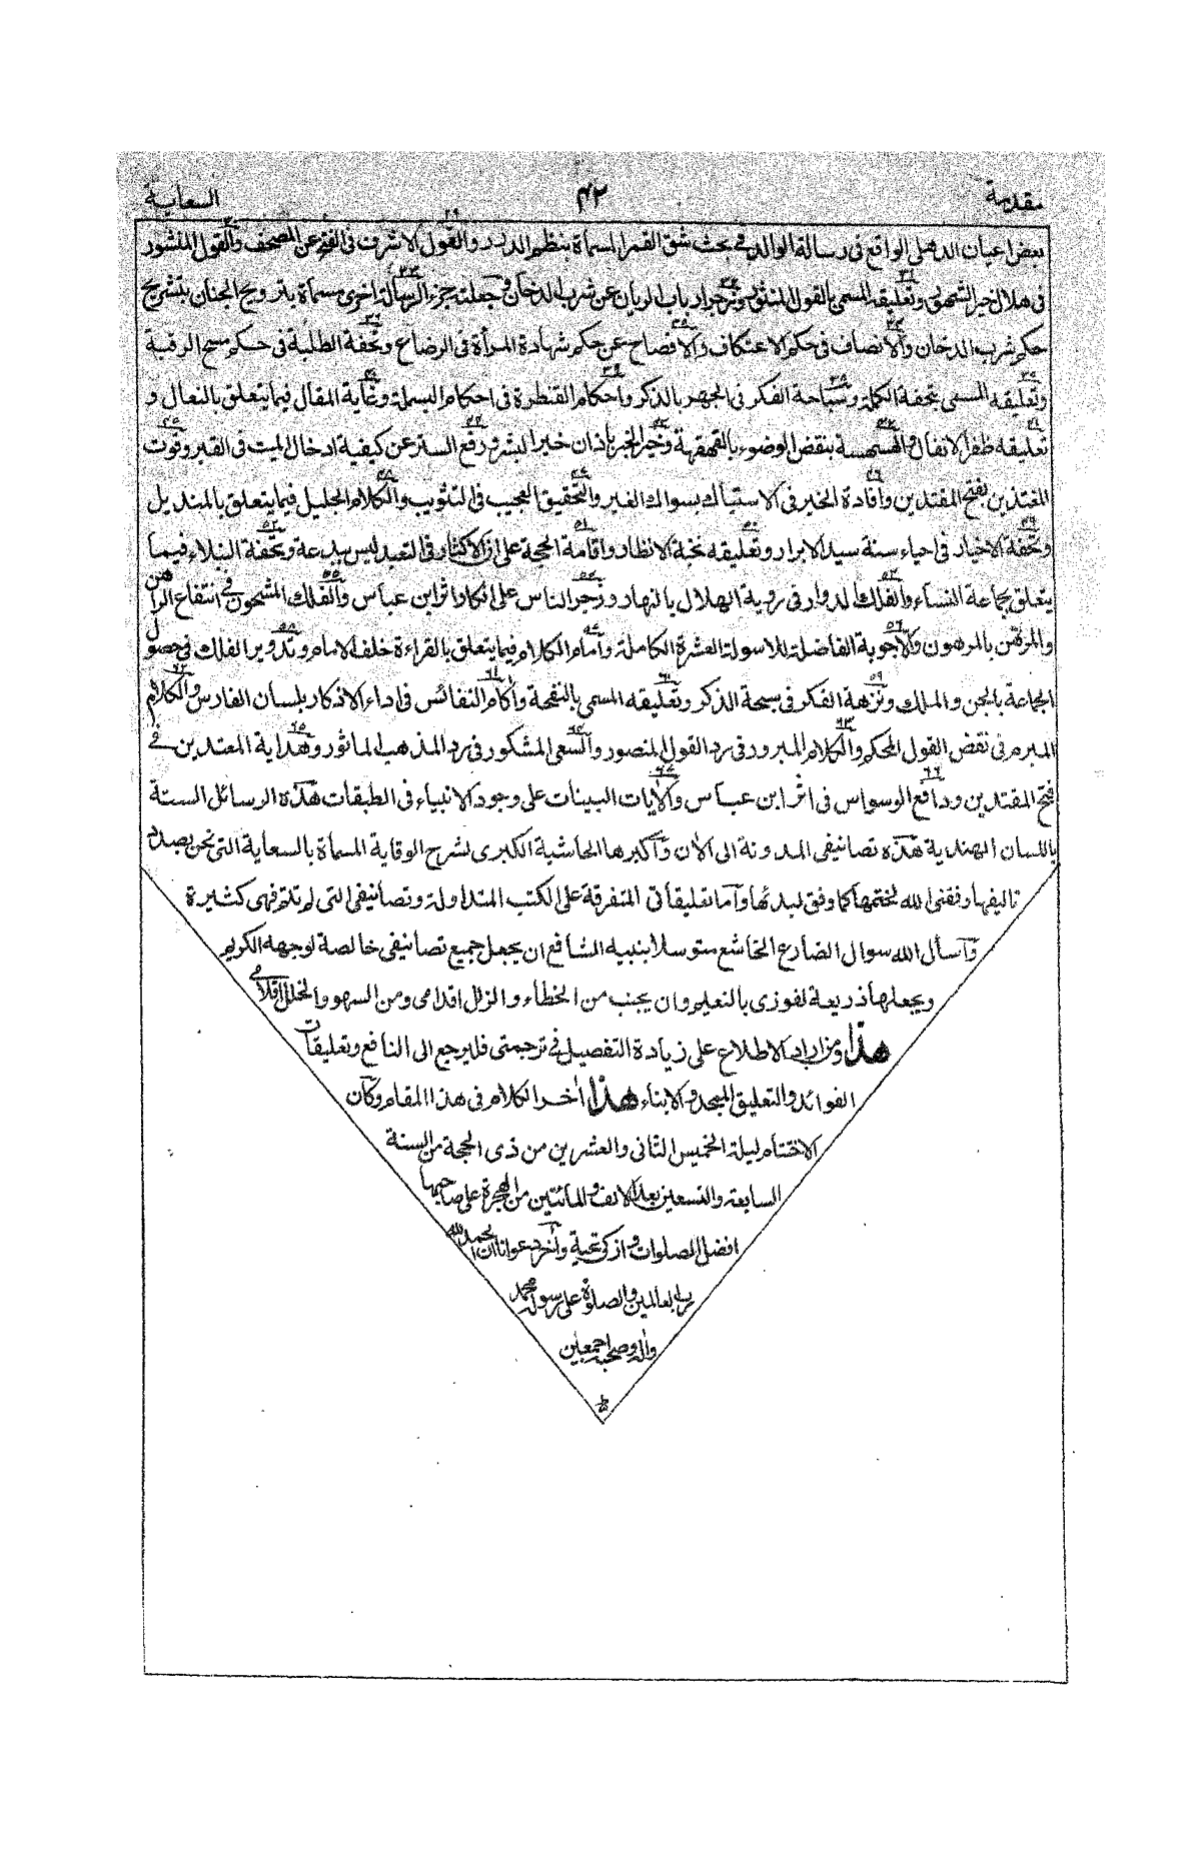 مقدمة ۴۲ السعاية
بعض اعيان الدهلى الواقع فى رسالة الوالد فى بحث شق القمر المسماة بنظم الدرر والقول الاشرف فى الفتح عن المصحف والقول المنشور
فى هلال خير الشهور وتعليقه المسمى بالقول المنثور وزجر ارباب الريان عن شرب الدخان وجعلته جزء الرسالة اخرى مسماة بترويح الجنان بتشريح
حكم شرب الدخان والانصاف فى حكم الاعتكاف والافصاح عن حكم شهادة المرأة فى الرضاع وتحفة الطلبة فى حكم مسح الرقبة
وتعليقه المسمى بتحفة الكملة وسباحة الفكر فى الجهر بالذكر واحكام القنطرة فى احكام البسملة وغاية المقال فيما يتعلق بالنعال و
تعليقه ظفر الانفال والهسهسة بنقض الوضوء بالقهقهة وخير الخبر باذان خير البشر ورفع الستر عن كيفية ادخال الميت فى القبر وقوت
المغتذين بفتح المقتدين وافادة الخير فى الاستياك بسواك الغير والتحقيق العجيب فى التثويب والكلام الجليل فيما يتعلق بالمنديل
وتحفة الاخيار فى احياء سنة سيد الابرار وتعليقه نخبة الانظار واقامة الحجة على ان الاكثار فى التعبد ليس ببدعة وتحفة النبلاء فيما
يتعلق بجماعة النساء والفلك الدوار فى روية الهلال بالنهار وزجر الناس على انكار اثر ابن عباس والفلك المشحون فى انتفاع الراهن
والمرتهن بالمرهون والاجوبة الفاضلة للاسولة العشرة الكاملة وامام الكلام فيما يتعلق بالقراءة خلف الامام وتدوير الفلك فى حصول
الجماعة بالجن والملك ونزهة الفكر فى سبحة الذكر وتعليقه المسمى بالنفحة وآكام النفائس فى اداء الاذكار بلسان الفارس والكلام
المبرم فى نقض القول المحكم والكلام المبرور فى رد القول المنصور والسعى المشكور فى رد المذهب الماثور وهداية المعتدين فى
فتح المقتدين ودافع الوسواس فى اثر ابن عباس والآيات البينات على وجود الانبياء فى الطبقات هذه الرسائل الستة
باللسان الهندية هذه تصانيفى المدونة الى الآن وآكبرها الحاشية الكبرى لشرح الوقاية المسماة بالسعاية التى نحن بصدد
تاليفها وفقنى الله لختمها كما وفق لبدئها وآما تعليقاتى المتفرقة على الكتب المتداولة وتصانيفى التى لم تتم فهى كثيرة
وآسأل الله سوال الضارع الخاشع متوسلا بنبيه المشافع ان يجعل جميع تصانيفى خالصة لوجهه الكريم
ويجعلها ذريعة لفوزى بالنعيم وان يجنب من الخطاء والزلل اقدامى ومن السهو والخلل اقلامى
هذا ومن اراد الاطلاع على زيادة التفصيل فى ترجمتى فليرجع الى النافع وتعليقات
الفوائد والتعليق الممجد والابناء هذا آخر الكلام فى هذا المقام وكان
الاختتام ليلة الخميس الثانى والعشرين من ذى الحجة من السنة
السابعة والتسعين بعد الالف والمائتين من الهجرة على صاحبها
افضل الصلوات وازكى تحية وآخر دعوانا ان الحمد لله
رب العالمين والصلوة على رسوله محمد
وآله وصحبه اجمعين